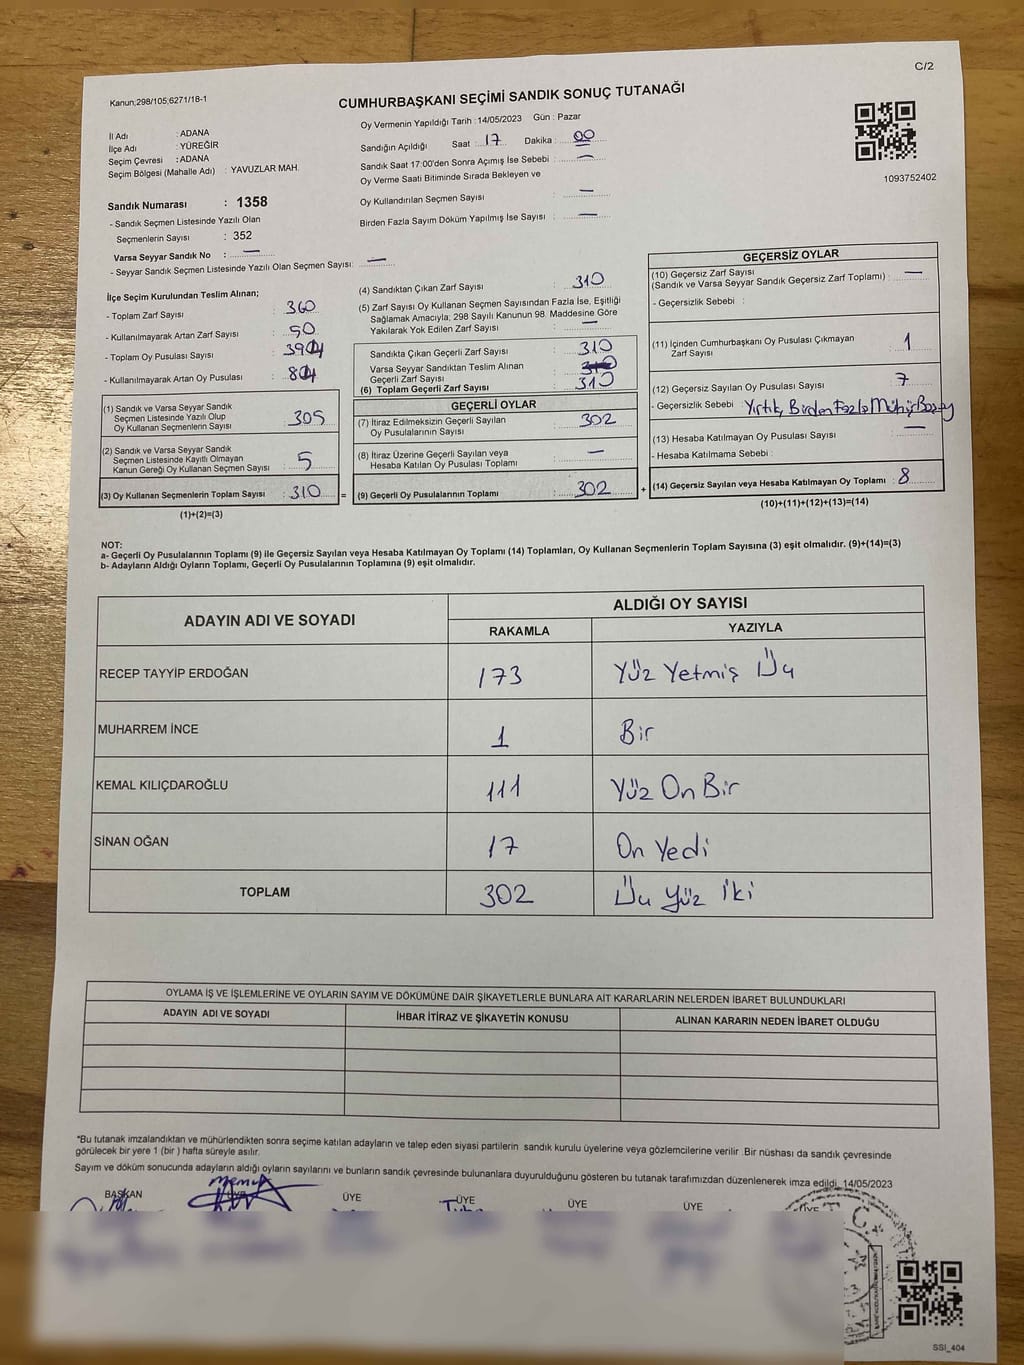 C/2
Kanun;298/105;6271/18-1
CUMHURBAŞKANI SEÇİMİ SANDIK SONUÇ TUTANAĞI
İl Adı : ADANA
İlçe Adı : YÜREĞİR
Seçim Çevresi : ADANA
Seçim Bölgesi (Mahalle Adı) : YAVUZLAR MAH.
Sandık Numarası : 1358
- Sandık Seçmen Listesinde Yazılı Olan
Seçmenlerin Sayısı : 352
Varsa Seyyar Sandık No : —
- Seyyar Sandık Seçmen Listesinde Yazılı Olan Seçmen Sayısı: —
Oy Vermenin Yapıldığı Tarih : 14/05/2023 Gün : Pazar
Sandığın Açıldığı Saat : 17 Dakika : 00
Sandık Saat 17:00'den Sonra Açımış İse Sebebi : —
Oy Verme Saati Bitiminde Sırada Bekleyen ve
Oy Kullandırılan Seçmen Sayısı : —
Birden Fazla Sayım Döküm Yapılmış İse Sayısı : —
1093752402
İlçe Seçim Kurulundan Teslim Alınan;
- Toplam Zarf Sayısı : 360
- Kullanılmayarak Artan Zarf Sayısı : 50
- Toplam Oy Pusulası Sayısı
- Kullanılmayarak Artan Oy Pusulası
(1) Sandık ve Varsa Seyyar Sandık
Seçmen Listesinde Yazılı Olup
Oy Kullanan Seçmenlerin Sayısı : 305
(2) Sandık ve Varsa Seyyar Sandık
Seçmen Listesinde Kayıtlı Olmayan
Kanun Gereği Oy Kullanan Seçmen Sayısı : 5
(3) Oy Kullanan Seçmenlerin Toplam Sayısı : 310 =
(1)+(2)=(3)
(4) Sandıktan Çıkan Zarf Sayısı : 310
(5) Zarf Sayısı Oy Kullanan Seçmen Sayısından Fazla İse, Eşitliği
Sağlamak Amacıyla; 298 Sayılı Kanunun 98. Maddesine Göre
Yakılarak Yok Edilen Zarf Sayısı : —
Sandıkta Çıkan Geçerli Zarf Sayısı : 310
Varsa Seyyar Sandıktan Teslim Alınan
Geçerli Zarf Sayısı
(6) Toplam Geçerli Zarf Sayısı : 310
GEÇERLİ OYLAR
(7) İtiraz Edilmeksizin Geçerli Sayılan
Oy Pusulalarının Sayısı : 302
(8) İtiraz Üzerine Geçerli Sayılan veya
Hesaba Katılan Oy Pusulası Toplamı : —
(9) Geçerli Oy Pusulalarının Toplamı : 302 +
GEÇERSİZ OYLAR
(10) Geçersiz Zarf Sayısı
(Sandık ve Varsa Seyyar Sandık Geçersiz Zarf Toplamı) : —
- Geçersizlik Sebebi :
(11) İçinden Cumhurbaşkanı Oy Pusulası Çıkmayan
Zarf Sayısı : 1
(12) Geçersiz Sayılan Oy Pusulası Sayısı : 7
- Geçersizlik Sebebi Yırtık, Birden Fazla Mühür
(13) Hesaba Katılmayan Oy Pusulası Sayısı : —
- Hesaba Katılmama Sebebi :
(14) Geçersiz Sayılan veya Hesaba Katılmayan Oy Toplamı : 8
(10)+(11)+(12)+(13)=(14)
NOT:
a- Geçerli Oy Pusulalarının Toplamı (9) ile Geçersiz Sayılan veya Hesaba Katılmayan Oy Toplamı (14) Toplamları, Oy Kullanan Seçmenlerin Toplam Sayısına (3) eşit olmalıdır. (9)+(14)=(3)
b- Adayların Aldığı Oyların Toplamı, Geçerli Oy Pusulalarının Toplamına (9) eşit olmalıdır.
ADAYIN ADI VE SOYADI
ALDIĞI OY SAYISI
RAKAMLA YAZIYLA
RECEP TAYYİP ERDOĞAN 173 Yüz Yetmiş Üç
MUHARREM İNCE 1 Bir
KEMAL KILIÇDAROĞLU 111 Yüz On Bir
SİNAN OĞAN 17 On Yedi
TOPLAM 302 Üç Yüz İki
OYLAMA İŞ VE İŞLEMLERİNE VE OYLARIN SAYIM VE DÖKÜMÜNE DAİR ŞİKAYETLERLE BUNLARA AİT KARARLARIN NELERDEN İBARET BULUNDUKLARI
ADAYIN ADI VE SOYADI İHBAR İTİRAZ VE ŞİKAYETİN KONUSU ALINAN KARARIN NEDEN İBARET OLDUĞU
*Bu tutanak imzalandıktan ve mühürlendikten sonra seçime katılan adayların ve talep eden siyasi partilerin sandık kurulu üyelerine veya gözlemcilerine verilir .Bir nüshası da sandık çevresinde
görülecek bir yere 1 (bir ) hafta süreyle asılır.
Sayım ve döküm sonucunda adayların aldığı oyların sayılarını ve bunların sandık çevresinde bulunanlara duyurulduğunu gösteren bu tutanak tarafımızdan düzenlenerek imza edildi. 14/05/2023
BAŞKAN ÜYE ÜYE ÜYE ÜYE ÜYE ÜYE
T.C.
SSI_404